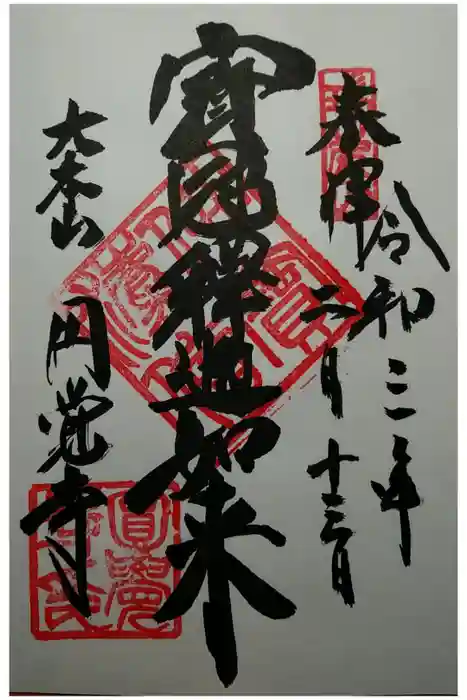 奉拝
令和三年
二月十三日
寳冠釋迦如来
大本山
円覚寺